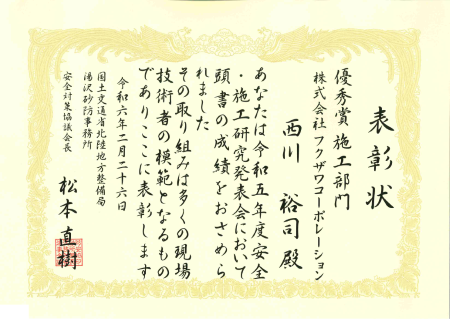 表彰状
優秀賞 施工部門
株式会社フクザワコーポレーション
西川 裕司 殿
あなたは令和五年度安全
・施工研究発表会において
頭書の成績をおさめら
れました
その取り組みは多くの現場
技術者の模範となるもの
でありここに表彰します
令和六年二月二十六日
国土交通省北陸地方整備局
湯沢砂防事務所
安全対策協議会長
松本直樹